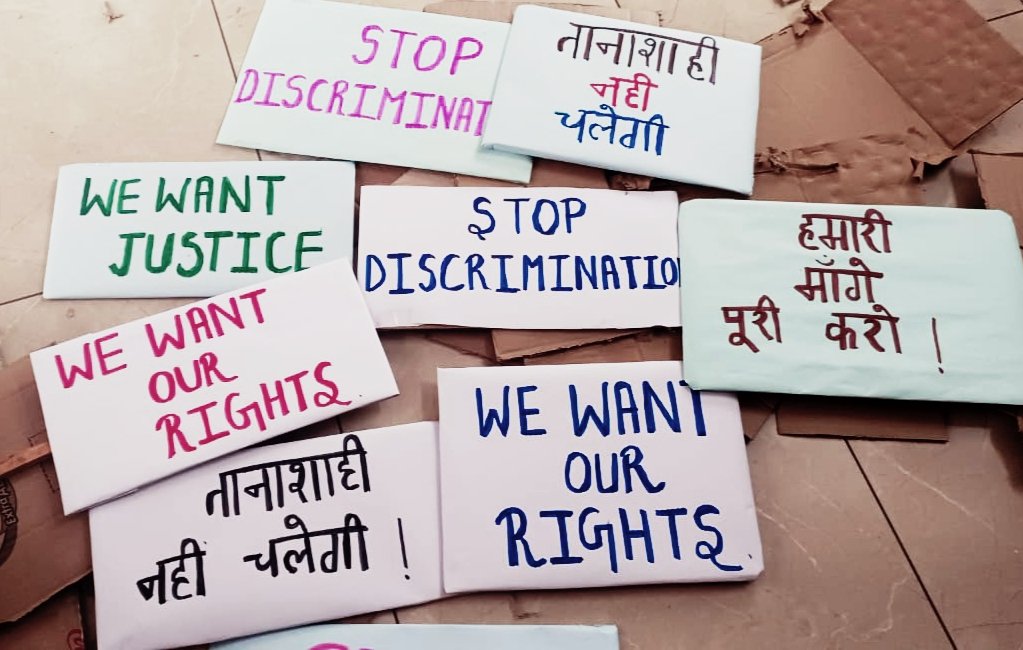 STOP
DISCRIMINAT
तानाशाही
नही
चलेगी
WE WANT
JUSTICE
STOP
DISCRIMINATIO
हमारी
माँगे
पूरी करो !
WE WANT
OUR
RIGHTS
तानाशाही
नही चलेगी !
WE WANT
OUR
RIGHTS.